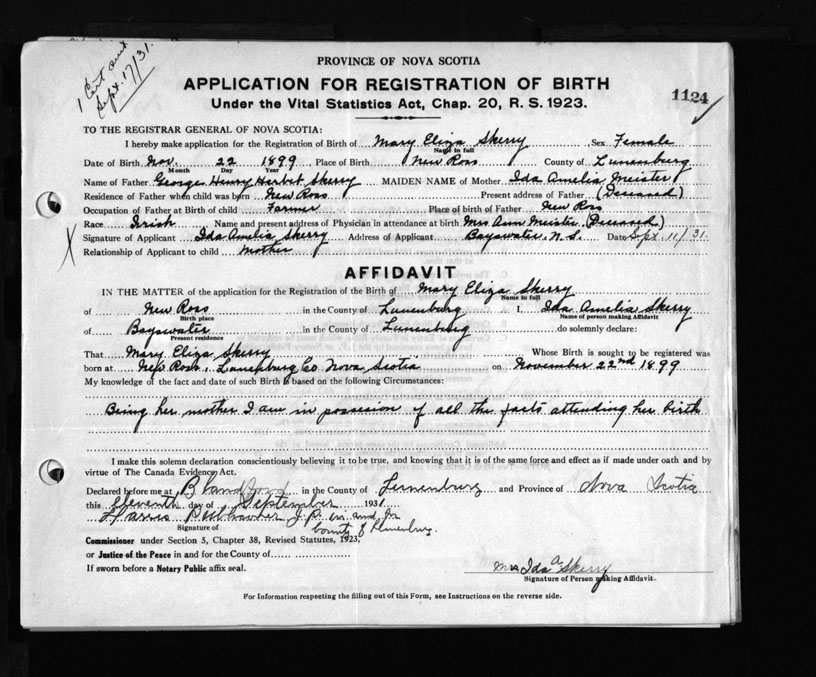 1 Cert and
Sept. 17/31.
PROVINCE OF NOVA SCOTIA
APPLICATION FOR REGISTRATION OF BIRTH
Under the Vital Statistics Act, Chap. 20, R. S. 1923.
1124
TO THE REGISTRAR GENERAL OF NOVA SCOTIA:
I hereby make application for the Registration of Birth of Mary Eliza Skerry Sex Female
Name in full
Date of Birth Nov. 22 1899 Place of Birth New Ross County of Lunenburg
Month Day Year
Name of Father George Henry Herbet Skerry MAIDEN NAME of Mother Ida Amelia Meister
Residence of Father when child was born New Ross Present address of Father (Deceased)
Occupation of Father at Birth of child Farmer Place of birth of Father New Ross
Race Irish Name and present address of Physician in attendance at birth Mrs Ann Meister (Deceased)
X Signature of Applicant Ida Amelia Skerry Address of Applicant Bayswater, N.S. Date Sept. 11/31.
Relationship of Applicant to child Mother
AFFIDAVIT
IN THE MATTER of the application for the Registration of the Birth of Mary Eliza Skerry
Name in full
of New Ross in the County of Lunenburg I, Ida Amelia Skerry
Birth place Name of person making Affidavit
of Bayswater in the County of Lunenburg do solemnly declare:
Present residence
That Mary Eliza Skerry Whose Birth is sought to be registered was
born at New Ross, Lunenburg Co Nova Scotia on November 22nd 1899
My knowledge of the fact and date of such Birth is based on the following Circumstances:
Being her mother I am in possesion of all the facts attending her birth
I make this solemn declaration conscientiously believing it to be true, and knowing that it is of the same force and effect as if made under oath and by
virtue of The Canada Evidence Act.
Declared before me at Blandford in the County of Lunenburg and Province of Nova Scotia
this Eleventh day of September 1931
Harris J.P. in and for
Signature of County of Lunenburg.
Commissioner under Section 5, Chapter 38, Revised Statutes, 1923,
or Justice of the Peace in and for the County of
If sworn before a Notary Public affix seal.
Mrs Ida A Skerry
Signature of Person making Affidavit.
For Information respecting the filling out of this Form, see Instructions on the reverse side.